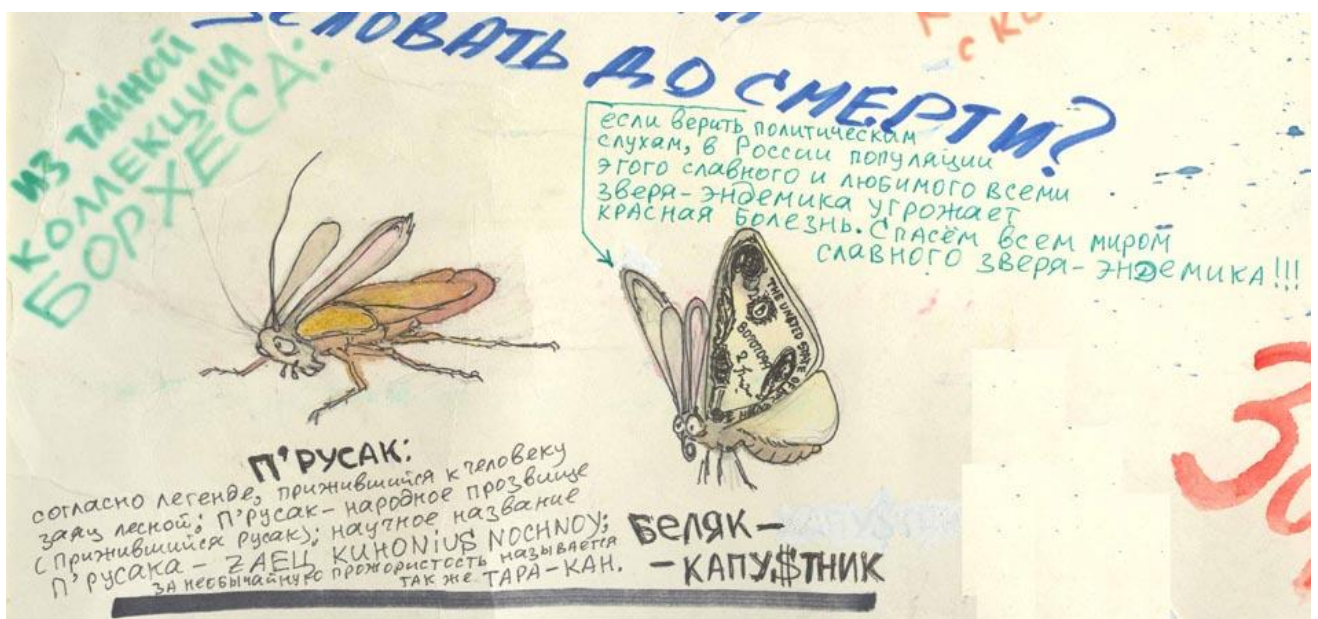 ЛОВАТЬ ДО СМЕРТИ?
С К
ИЗ ТАЙНОЙ
КОЛЛЕКЦИИ
БОРХЕСА:
если верить политическим
слухам, в России популяции
этого славного и любимого всеми
зверя-эндемика угрожает
красная болезнь. Спасём всем миром
славного зверя-эндемика!!!
THE UNITED STATE OF
П'РУСАК:
согласно легенде, прижившийся к человеку
заяц лесной; П'русак - народное прозвище
(прижившийся русак); научное название
П'русака - ZAEЦ KUHONIUS NOCHNOY;
ЗА НЕОБЫЧАЙНУЮ прожористость называется
так же ТАРА-КАН.
БЕЛЯК-
-КАПУ$ТНИК